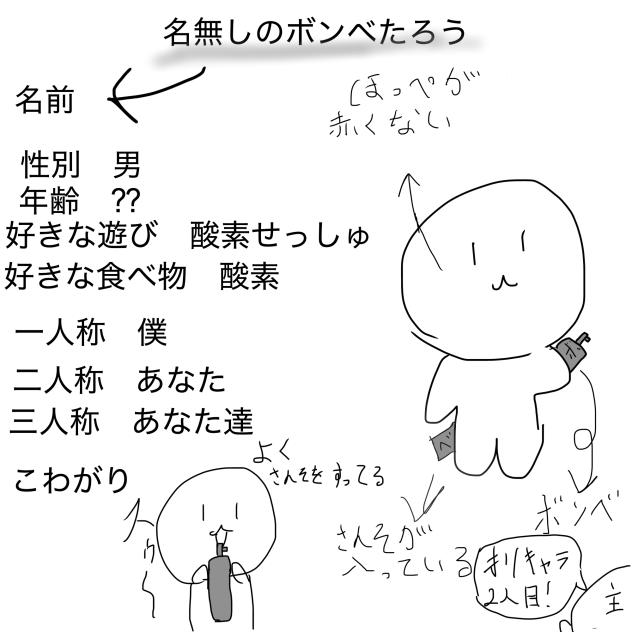 名無しのボンベたろう
名前
性別 男
年齢 ??
好きな遊び 酸素せっしゅ
好きな食べ物 酸素
一人称 僕
二人称 あなた
三人称 あなた達
こわがり
ほっぺが
赤くない
ボ
ベ
ボンベ
さんそが
入っている
よく
さんそをすってる
スゥ〜
オリキャラ
2人目!
主